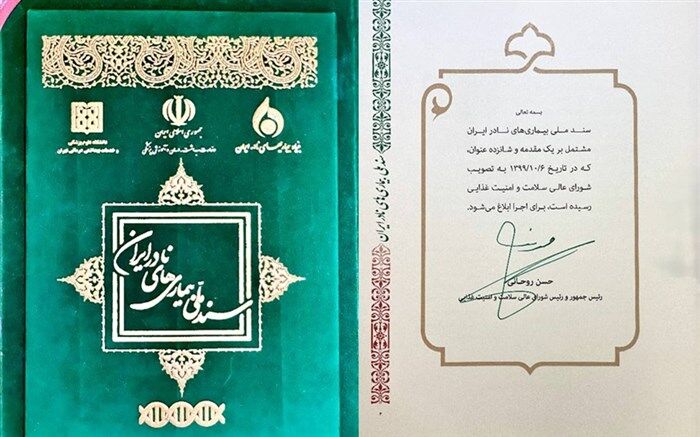 بنیاد بیماری‌های نادر ایران
جمهوری اسلامی ایران
وزارت بهداشت، درمان و آموزش پزشکی
دانشگاه علوم پزشکی
و خدمات بهداشتی درمانی تهران
سند ملی بیماری‌های نادر ایران
سند ملی بیماری‌های نادر ایران
بسمه تعالی
سند ملی بیماری‌های نادر ایران
مشتمل بر یک مقدمه و شانزده عنوان،
که در تاریخ ۱۳۹۹/۱۰/۶ به تصویب
شورای عالی سلامت و امنیت غذایی
رسیده است، برای اجرا ابلاغ می‌شود.
حسن روحانی
رئیس جمهور و رئیس شورای عالی سلامت و امنیت غذایی